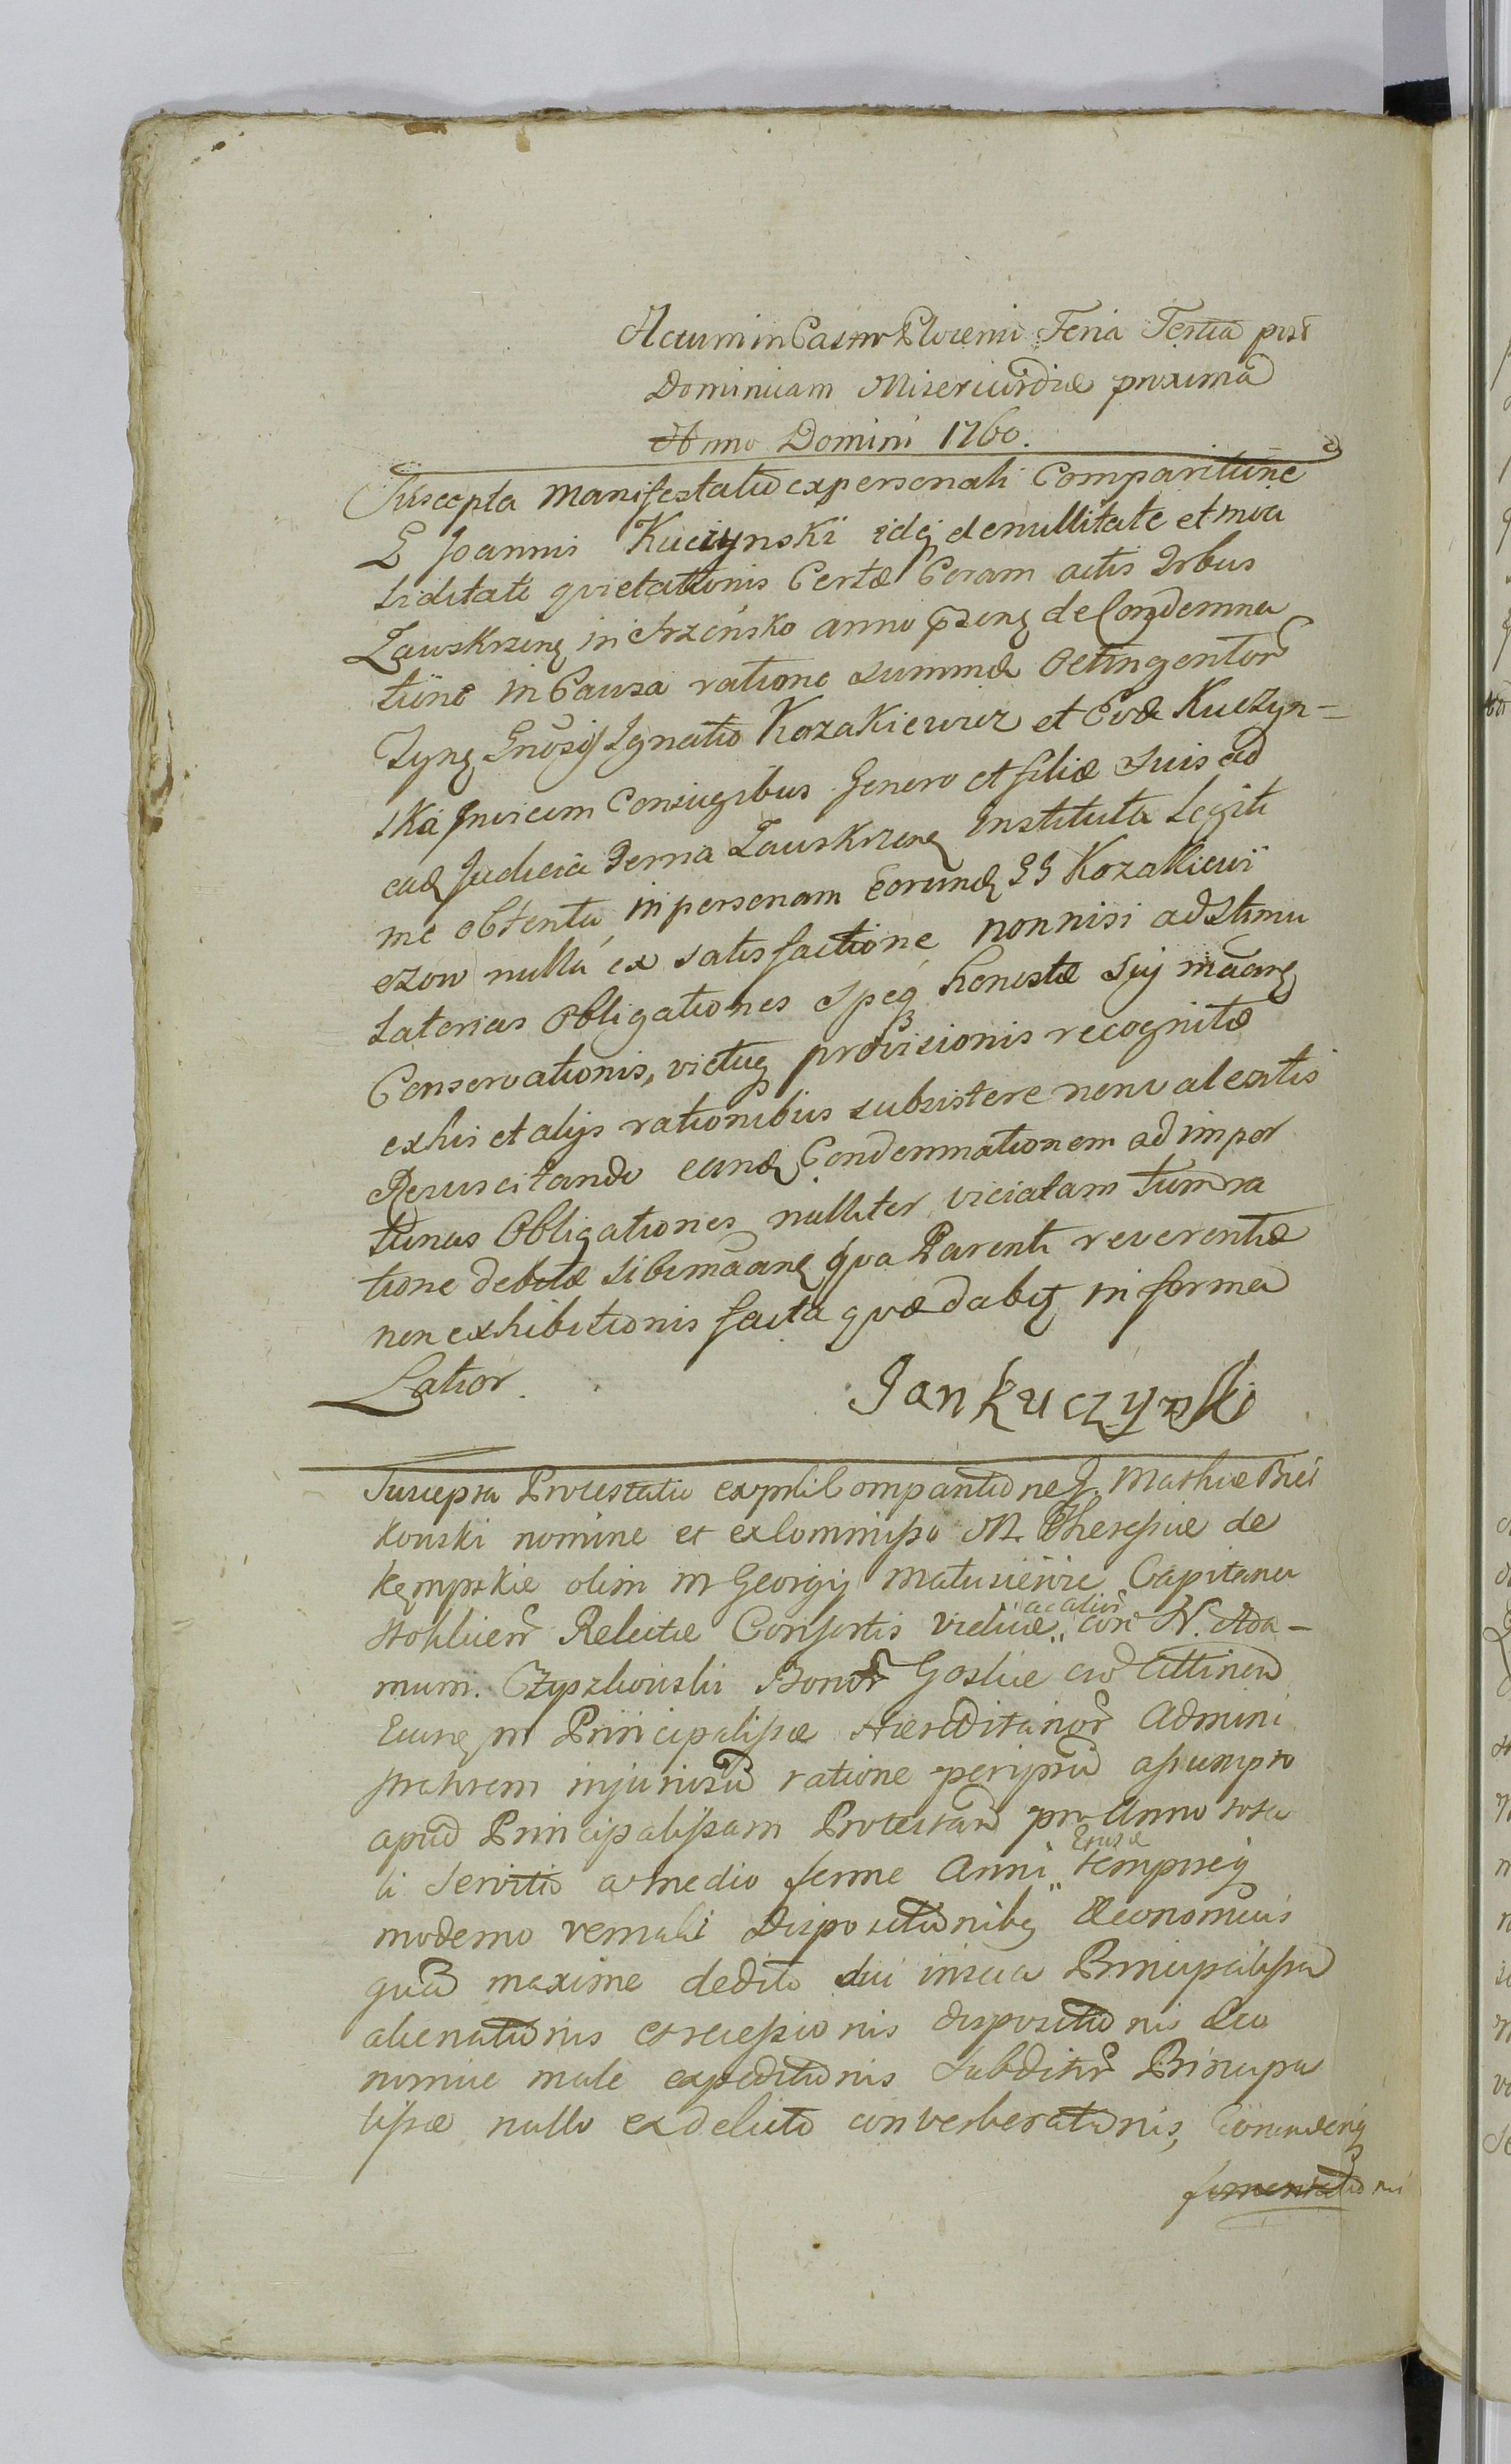 Actum in Castro Plocensi Feria Tertia post
Dominicam Misericordiæ proxima
Anno Domini 1760.
Suscepta Manifestatio ex personali Comparitione
G Joannis Kuczynski idq de nullitate et inva
liditate quietationis Certæ Coram actis Trbus
Zawskrzeng in Srzeńsko anno psenq de Condemna
tione in Causa ratione summæ Octingentor
Tynq Gnosis Ignatio Kozakiewicz et Evæ Kuczyn=
ska Invicem Conjugibus Genero et filiæ suis ad
eadq Judicia Terria Zawskrzenq Instituta Legiti
me obtenta in personam Eorundq GG Kozakiewi
czow nulla ex satisfactione nonnisi ad Stimu
laterias Obligationes speq honestæ sui mãanq
Conservationis, victuq provisionis recognitæ
ex his et alijs rationibus subsistere non valentis
Resuscitando eandq Condemnationem ad impor
tunas Obligationes nulliter viciatam tum ra
tione debitæ sibi mãanq qua Parenti reverentiæ
non exhibitionis facta quæ dabiq in forma
Latior.
Jan Kuczynski
Suscepta Protestatio ex prsli Comparitione G. Mathiæ Biei
konski nomine et ex Commisso M. Theresiæ de
Kempskie olim M Georgij Matusiewic Capitanei
Stokliens Relictæ Consortis viduæ ac alior con N. Ada-
mum. Czyszkowski Bonor Goslice cu Attinen
Eiusq M Principalissæ Hæreditarior Admini
stratorem injuriosu ratione per ipsu assumpto
apud Principalissam Protestan pro Anno tota
li Servitio a medio ferme Anni Eiusd temporeq
moderno vernali Dispositionibq Œconomicis
qua maxime dedito sui inscia Principalissa
alienationis et recessionis dispositionis Œco
nomiæ male expeditionis Subditor Principa
lissæ nullo ex delicto converberationis, Eorundenq